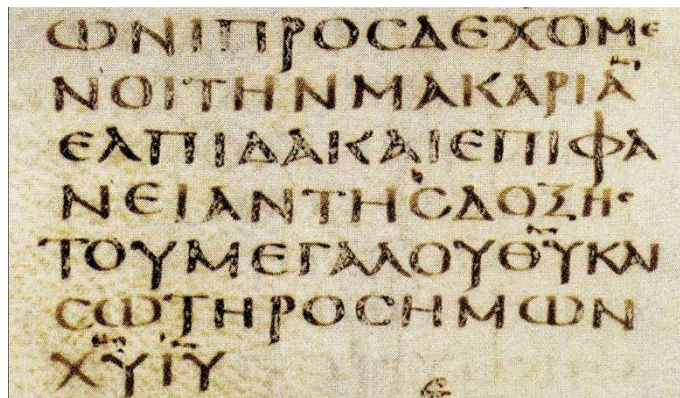 ΩΝΙΠΡΟϹΔΕΧΟΜΕ
ΝΟΙΤΗΝΜΑΚΑΡΙΑ̅
ΕΛΠΙΔΑΚΑΙΕΠΙΦΑ
ΝΕΙΑΝΤΗϹΔΟΞΗϹ
ΤΟΥΜΕΓΑΛΟΥΘ̅Υ̅ΚΑΙ
ϹΩΤΗΡΟϹΗΜΩΝ
Χ̅Υ̅Ι̅Υ̅